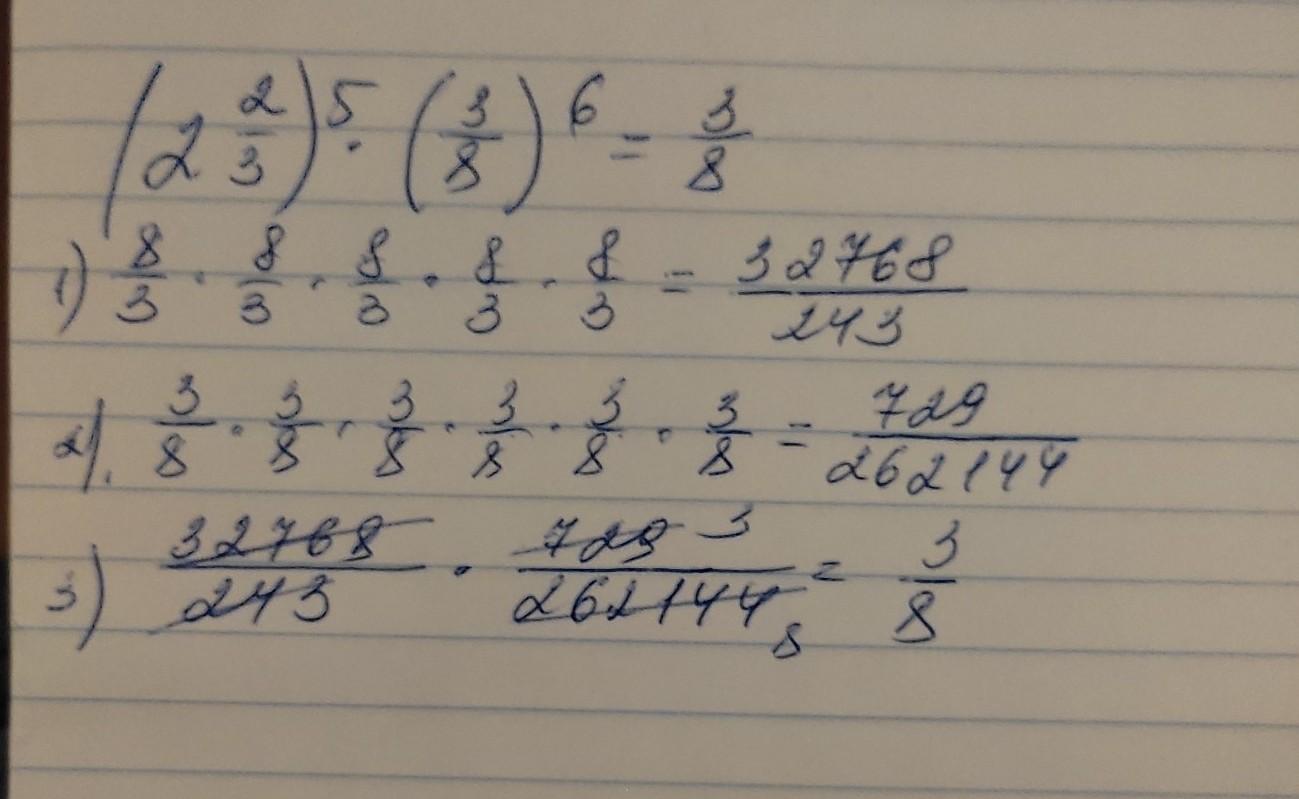 (2 2/3)^5 · (3/8)^6 = 3/8
1) 8/3 · 8/3 · 8/3 · 8/3 · 8/3 = 32768/243
2). 3/8 · 3/8 · 3/8 · 3/8 · 3/8 · 3/8 = 729/262144
3) 32768/243 · 729 3/262144 8 = 3/8